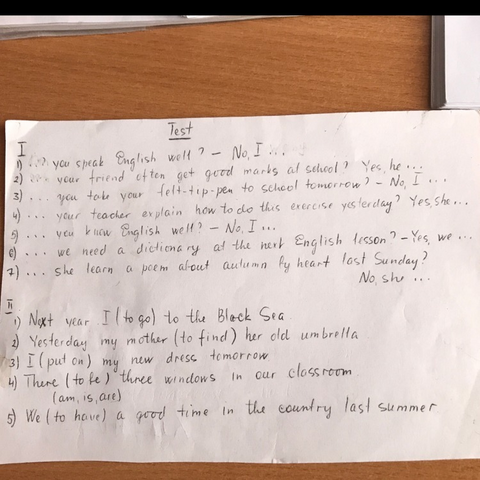 Test
I
1) ... you speak English well? – No, I ...
2) ... your friend often get good marks at school? Yes, he ...
3) ... you take your felt-tip-pen to school tomorrow? – No, I ...
4) ... your teacher explain how to do this exercise yesterday? Yes, she...
5) ... you know English well? – No, I ...
6) ... we need a dictionary at the next English lesson? – Yes, we ...
7) ... she learn a poem about autumn by heart last Sunday?
No, she ...
II
1) Next year I (to go) to the Black Sea.
2) Yesterday my mother (to find) her old umbrella
3) I (put on) my new dress tomorrow
4) There (to be) three windows in our classroom.
(am, is, are)
5) We (to have) a good time in the country last summer